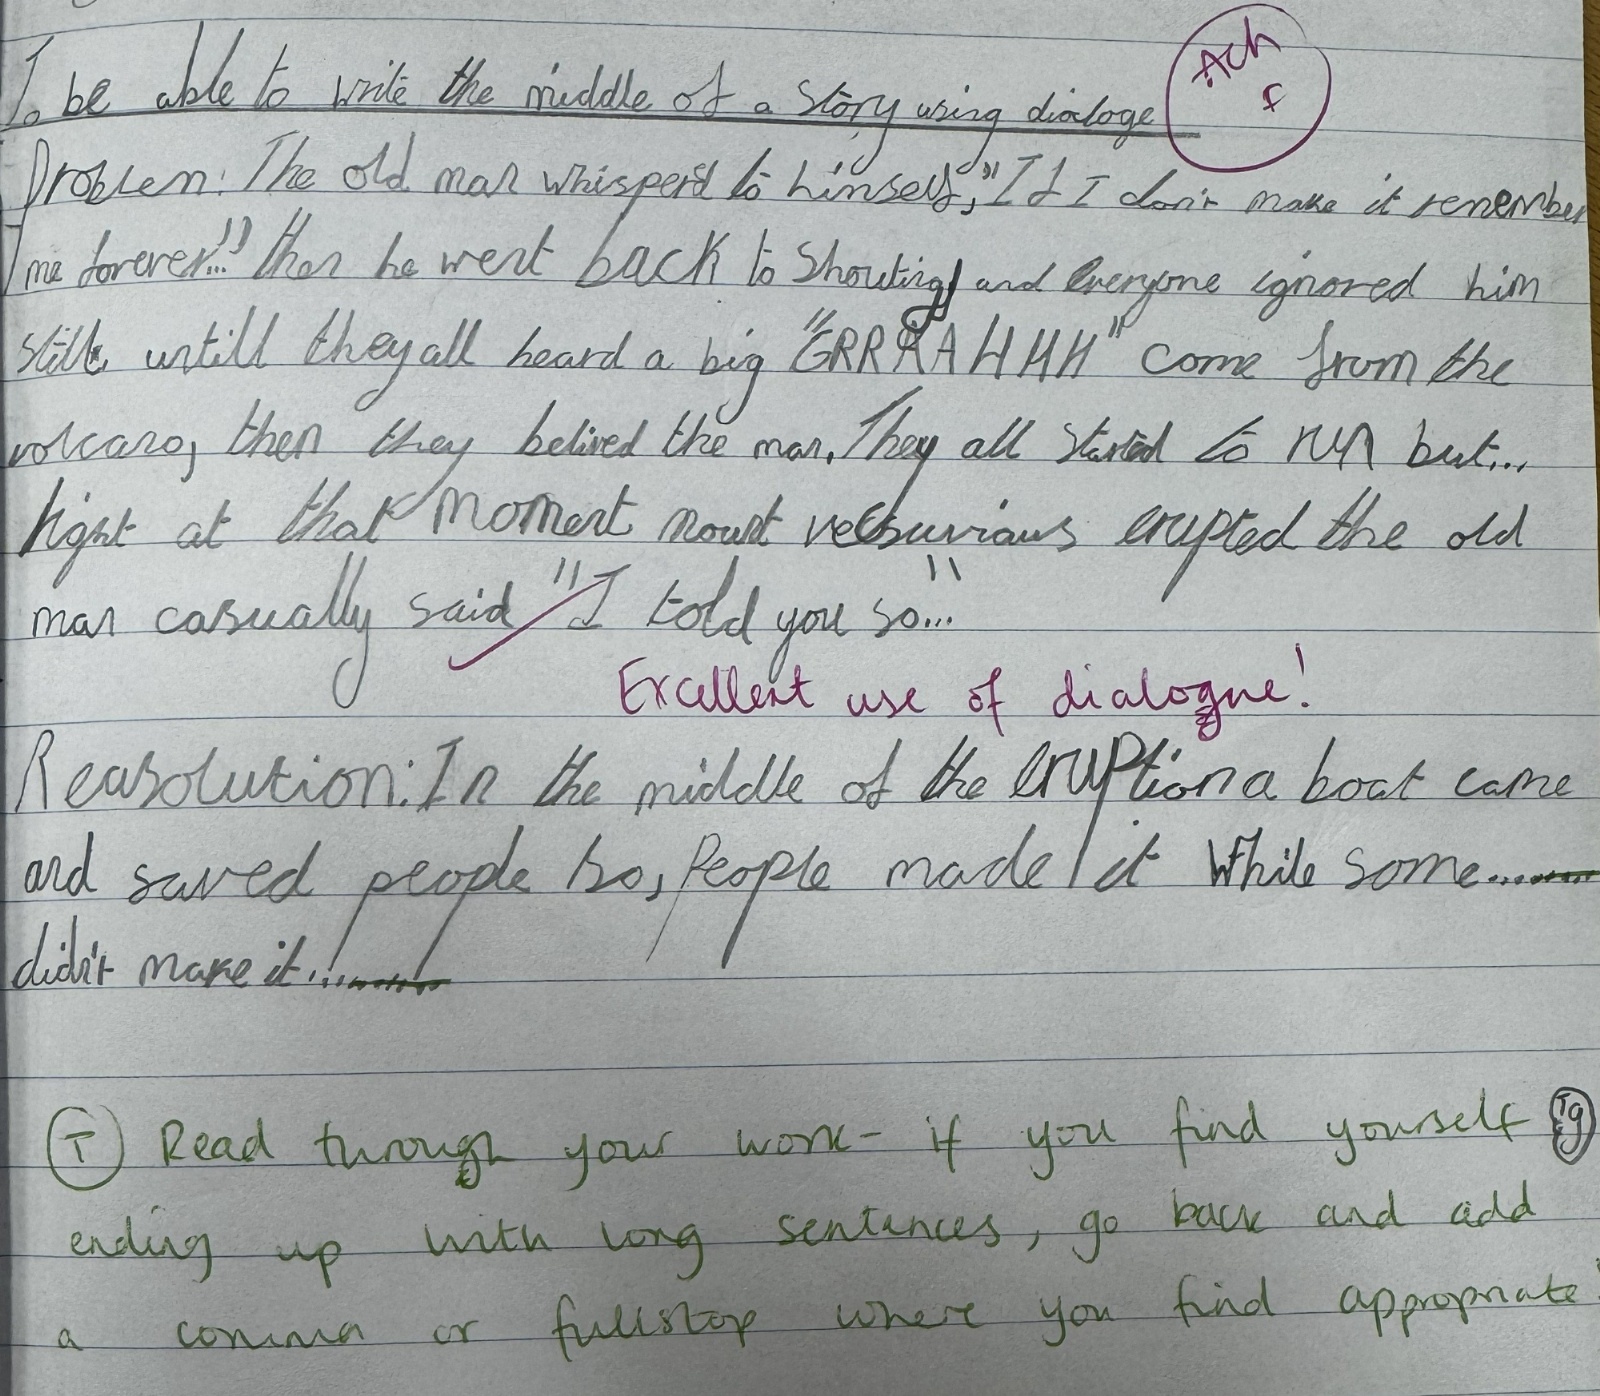 To be able to write the middle of a story using dialoge
Ach
f
Problem: The old man whisperd to himself, "If I don't make it remember
me forever..." then he went back to shouting and everyone ignored him
still, untill they all heard a big "GRRRAAHHH" come from the
volcano, then they belived the man. They all started to run but...
Right at that moment mount vesuvious erupted the old
man casually said "I told you so..."
Excellent use of dialogue!
Reasolution: In the middle of the eruption a boat came
and saved people so, people made it while some......
didn't make it......
T Read through your work - if you find yourself
ending up with long sentences, go back and add
a comma or fullstop where you find appropriate!